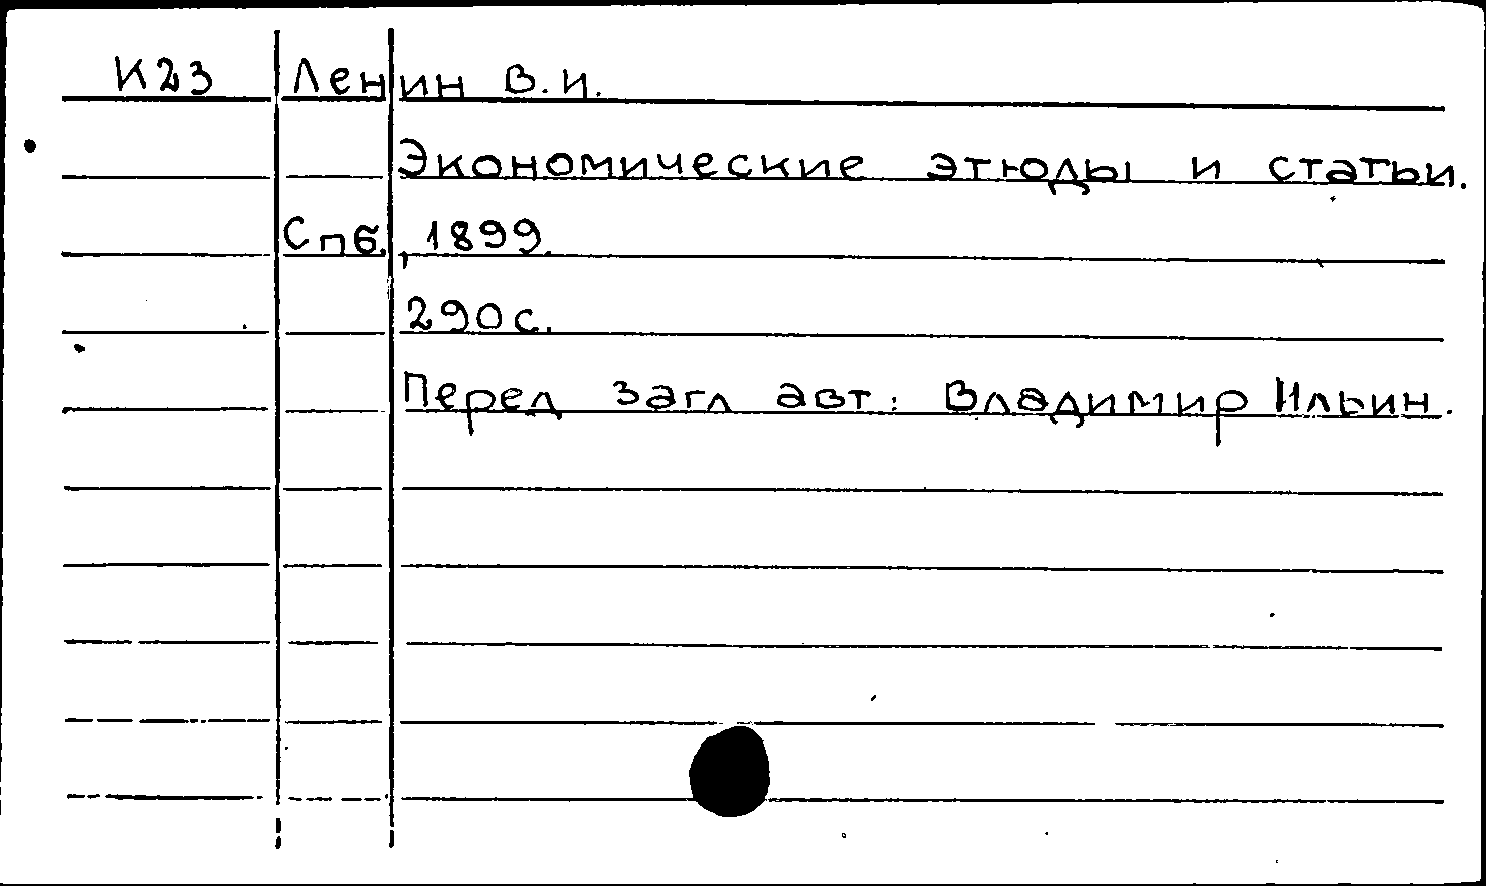 К23 Ленин В.И.
Экономические этюды и статьи.
Спб., 1899.
290с.
Перед загл авт: Владимир Ильин.